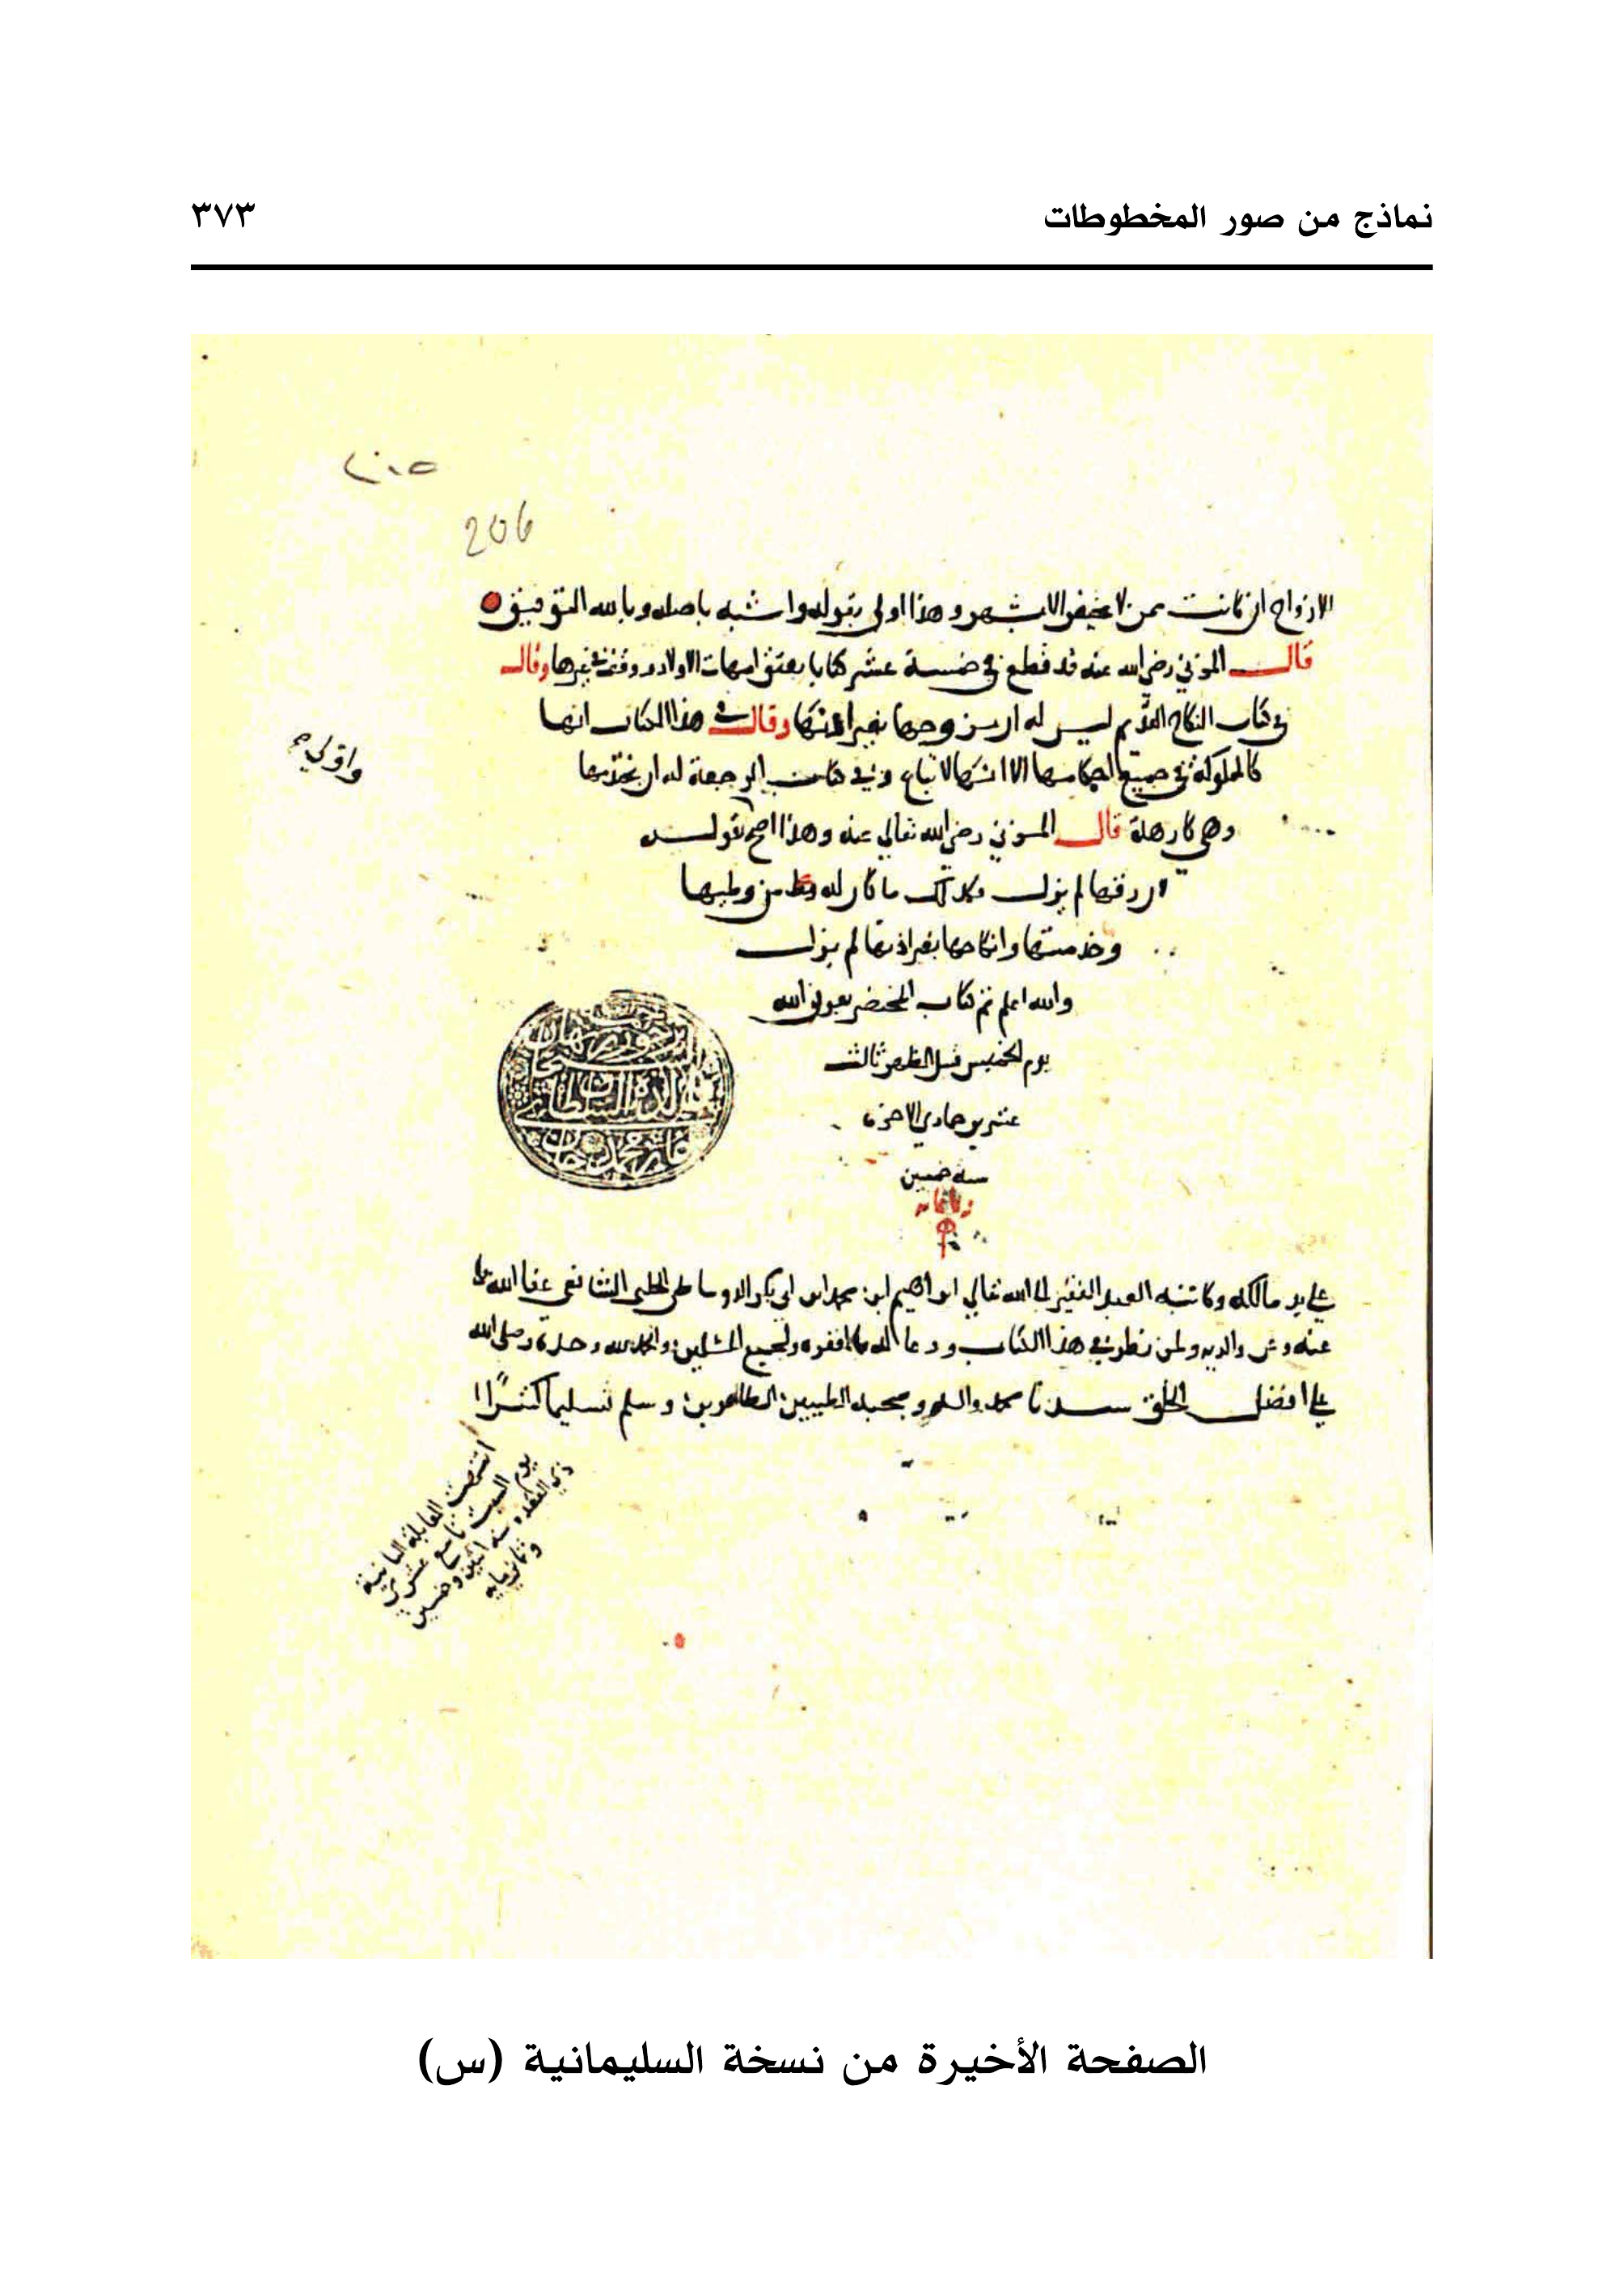 نماذج من صور المخطوطات ٣٧٣
206
الازواج ان كانت ممن لا تحيض الا بشهر وهذا اولى بقوله واشبه باصله وبالله التوفيق
قال المزني رضي الله عنه قد قطع في خمسة عشر كتابا بعتق امهات الاولاد ووقف في غيرها وقال
في كتاب النكاح القديم ليس له ان يزوجها بغير اذنها وقال في هذا الكتاب انها
كالمملوكة في جميع احكامها الا انها لا تباع وفي كتاب الرجعة له ان يختدمها
وهي كارهة قال المزني رضي الله تعالى عنه وهذا اصح بقوله
ان رقها لم يزل فكذلك ما كان له من وطيها
وخدمتها وانكاحها بغير اذنها لم يزل
والله اعلم تم كتاب المختصر بعون الله
يوم الخميس قبل الظهر ثالث
عشرين جمادى الاخرة
سنة خمسين
وثمانمايه
على يد مالكه وكاتبه العبد الفقير الى الله تعالى ابراهيم ابن محمد ابن ابي بكر الحلبي الشافعي عفا الله
عنه وعن والديه ولمن نظر في هذا الكتاب ودعا له ولجميع المسلمين والحمد لله وحده وصلى الله
على افضل الخلق سيدنا محمد واله وصحبه الطيبين الطاهرين وسلم تسليما كثيرا
المقابلة الثانية
يوم السبت تاسع عشري
ذي القعده سنة اثنين وخمسين
وثمانمايه
الصفحة الأخيرة من نسخة السليمانية (س)